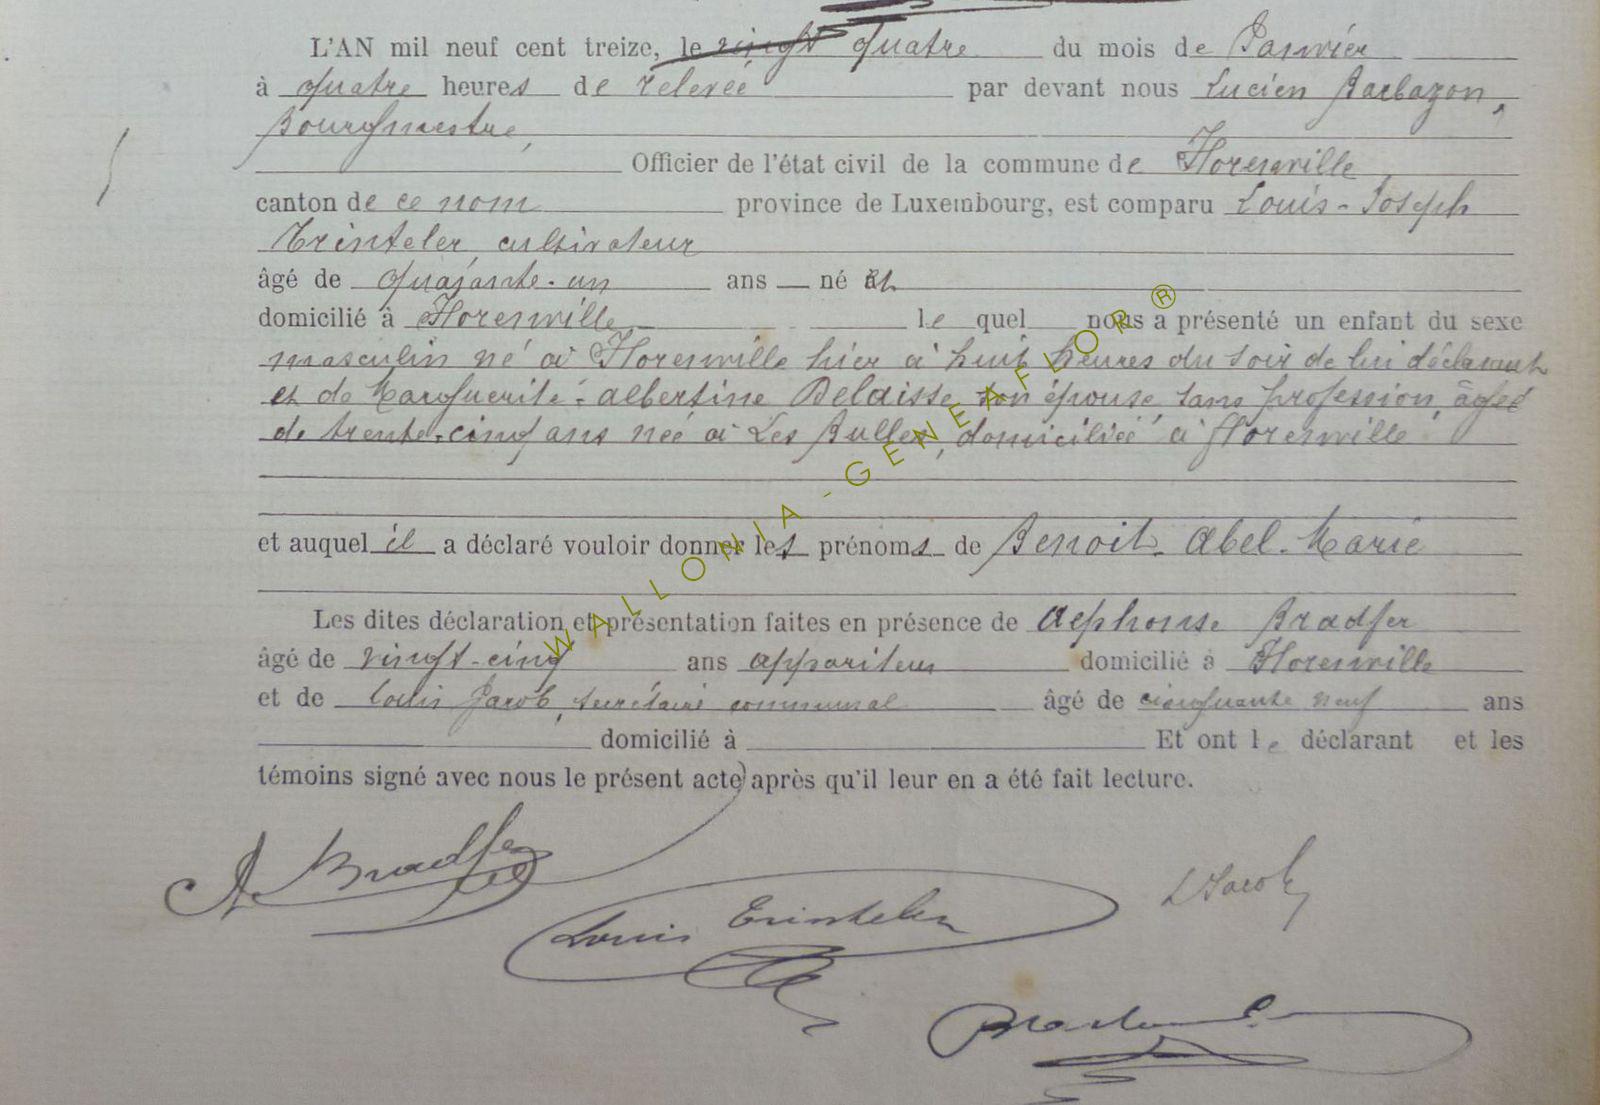 L'AN mil neuf cent treize, le vingt quatre du mois de Janvier
à quatre heures de relevée par devant nous Lucien Barbazon,
Bourgmestre,
Officier de l'état civil de la commune de Florenville,
canton de ce nom province de Luxembourg, est comparu Louis-Joseph
Trinteler, cultivateur
âgé de quarante-un ans né et
domicilié à Florenville, le quel nous a présenté un enfant du sexe
masculin né à Florenville hier à huit heures du soir de lui déclarant
et de Marguerite-Albertine Delaisse son épouse, sans profession, âgée
de trente-cinq ans née à Les Bulles, domiciliée à Florenville
et auquel il a déclaré vouloir donner les prénoms de Benoit-Abel-Marie
Les dites déclaration et présentation faites en présence de Alphonse Bradfer
âgé de vingt-cinq ans appariteur domicilié à Florenville
et de Louis Jacob, secrétaire communal âgé de cinquante neuf ans
domicilié à Et ont le déclarant et les
témoins signé avec nous le présent acte après qu'il leur en a été fait lecture.
A Bradfer
Louis Trinteler
L Jacob
WALLONIA-GENEAFLOR®